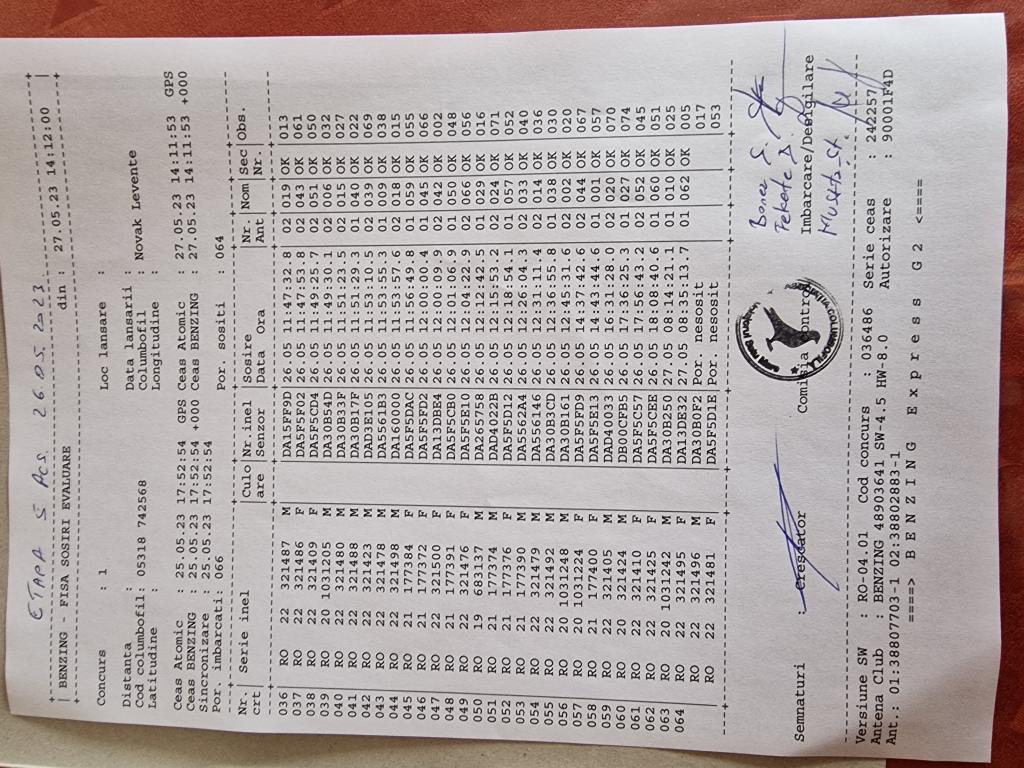 ETAPA 5 Acs. 26.05.2023.
BENZING - FISA SOSIRI EVALUARE din : 27.05.23 14:12:00
Concurs : 1 Loc lansare :
Distanta : Data lansarii :
Cod columbofil: 05318 742568 Columbofil : Novak Levente
Latitudine : Longitudine :
Ceas Atomic : 25.05.23 17:52:54 GPS Ceas Atomic : 27.05.23 14:11:53 GPS
Ceas BENZING : 25.05.23 17:52:54 +000 Ceas BENZING : 27.05.23 14:11:53 +000
Sincronizare : 25.05.23 17:52:54
Por. imbarcati: 066 Por. sositi : 064
Nr. | Serie inel |Culo|Nr.inel |Sosire |Nr. |Nom|Sec|Obs.
crt| |are |Senzor |Data Ora |Ant | |Nr.|
036 RO 22 321487 M DA15FF9D 26.05 11:47:32.8 02 019 OK 013
037 RO 22 321486 F DA5F5F02 26.05 11:47:53.8 02 043 OK 061
038 RO 22 321409 F DA5F5CD4 26.05 11:49:25.7 02 051 OK 050
039 RO 20 1031205 M DA30B54D 26.05 11:49:30.1 02 006 OK 032
040 RO 22 321480 M DA30B33F 26.05 11:51:23.5 02 015 OK 027
041 RO 22 321488 M DA30B17F 26.05 11:51:29.3 01 040 OK 022
042 RO 22 321423 M DAD3E105 26.05 11:53:10.5 02 039 OK 069
043 RO 22 321478 M DA5561B3 26.05 11:53:55.3 01 009 OK 038
044 RO 22 321498 M DA160000 26.05 11:53:57.6 02 018 OK 015
045 RO 21 177384 F DA5F5DAC 26.05 11:56:49.8 01 059 OK 055
046 RO 21 177372 F DA5F5FD2 26.05 12:00:00.4 01 045 OK 066
047 RO 22 321500 F DA13DBE4 26.05 12:00:09.9 02 042 OK 002
048 RO 21 177391 F DA5F5CB0 26.05 12:01:06.9 01 050 OK 048
049 RO 22 321476 F DA5F5E10 26.05 12:04:22.9 02 066 OK 056
050 RO 19 683137 M DA265758 26.05 12:12:42.5 01 029 OK 016
051 RO 21 177374 M DAD4022B 26.05 12:15:53.2 02 024 OK 071
052 RO 21 177376 F DA5F5D12 26.05 12:18:54.1 01 057 OK 052
053 RO 21 177390 M DA5562A4 26.05 12:26:04.3 02 033 OK 040
054 RO 22 321479 M DA556146 26.05 12:31:11.4 02 014 OK 036
055 RO 22 321492 M DA30B3CD 26.05 12:36:55.8 01 038 OK 030
056 RO 20 1031248 M DA30B161 26.05 12:45:31.6 02 002 OK 020
057 RO 20 1031224 F DA5F5FD9 26.05 14:37:42.6 02 044 OK 067
058 RO 21 177400 F DA5F5E13 26.05 14:43:44.6 01 001 OK 057
059 RO 22 321405 M DAD40033 26.05 16:31:28.0 02 020 OK 070
060 RO 20 321424 M DB00CFB5 26.05 17:36:25.3 01 027 OK 074
061 RO 22 321410 F DA5F5C57 26.05 17:56:43.2 02 052 OK 045
062 RO 22 321425 F DA5F5CEE 26.05 18:08:40.6 01 060 OK 051
063 RO 20 1031242 M DA30B250 27.05 08:14:21.1 01 010 OK 025
064 RO 22 321495 F DA13DE32 27.05 08:35:13.7 01 062 OK 005
RO 22 321496 M DA30B0F2 Por. nesosit 017
RO 22 321481 F DA5F5D1E Por. nesosit 053
Semnaturi : crescator Comisia control Imbarcare/Desigilare
Versiune SW : RO-04.01 Cod concurs : 036486 Serie ceas : 242257
Antena Club : BENZING 48903641 SW-4.5 HW-8.0 Autorizare : 90001F4D
Ant.: 01:38807703-1 02:38802883-1
====> B E N Z I N G E x p r e s s G 2 <====